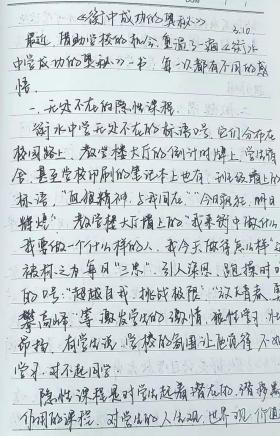 《衡中成功的奥秘》
3.10.
最近，借助学校的机会，重温了一遍《衡水
中学成功的奥秘》一书，每一次都有不同的感
悟。
一、无处不在的隐性课程
衡水中学无处不在的标语口号，它们分布在
校园路上，教学楼大厅的倒计时牌上，学生宿
舍，甚至学校印制的笔记本上也有，
标语，"
教学楼大厅墙上的"我来衡中做什么
我要做一个什么样的人，我今天做得怎么样"
被称之为每日"三思"，引人深思，跑操时
的口号："超越自我，挑战极限"，
攀高峰"等激发学生的激情，
有学生说，学校的氛围让他觉得不
学习，对不起同学
隐性课程是对学生起着潜在的，
作用的课程，对学生的人生观、世界观、价值